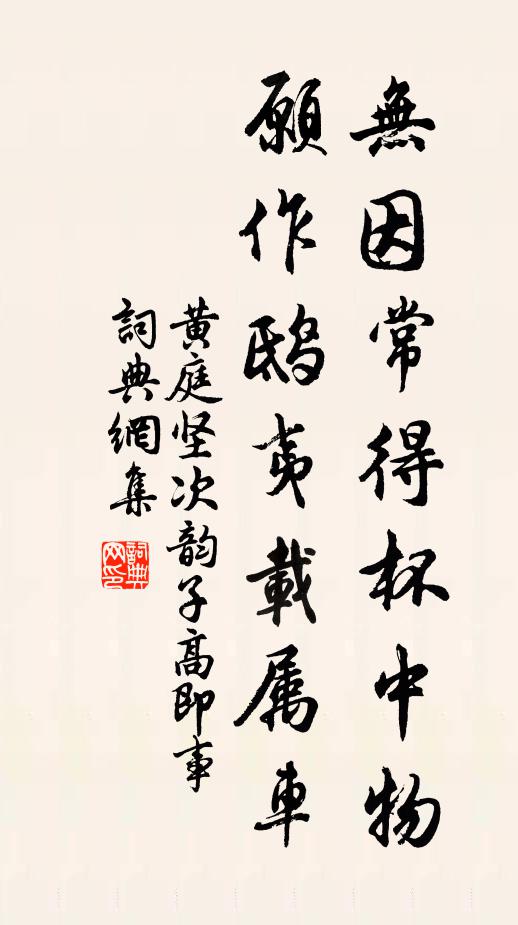 無因常得杯中物
願作鴟夷載属車
黄庭坚次韵子高即事
詞典網集
詞典网印